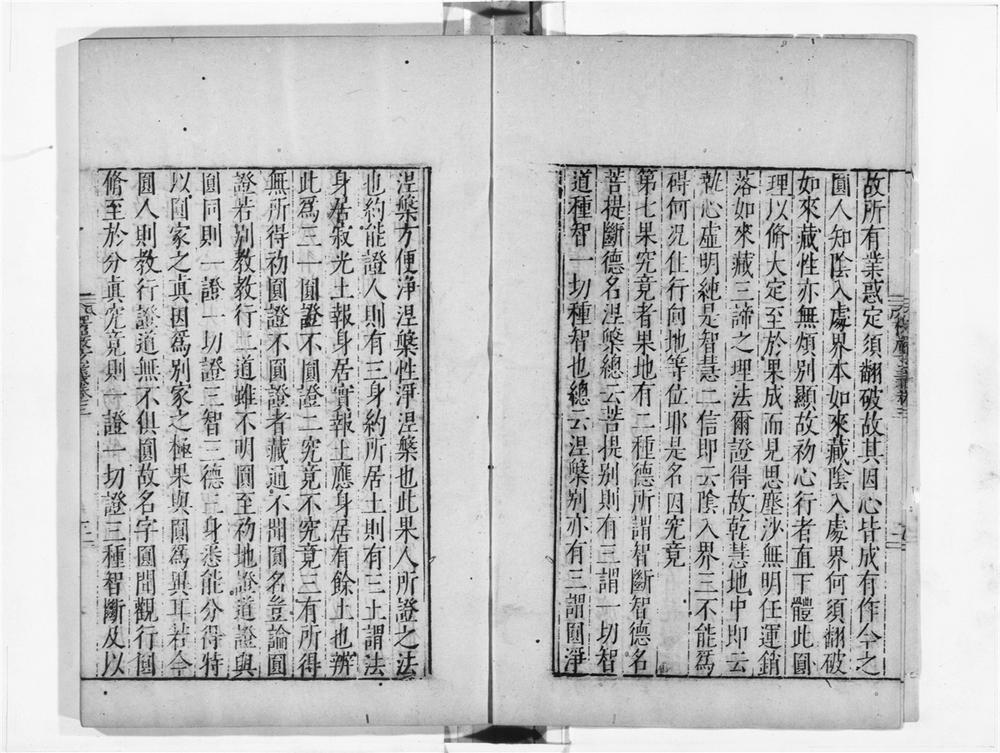 故所有業惑定須翻破故其因心皆成有作今之
圓人知陰入處界本如來藏陰入處界何須翻破
如來藏性亦無煩別顯故初心行者直下體此圓
理以脩大定至於果成而見思塵沙無明任運銷
落如來藏三諦之理法爾證得故乾慧地中即云
執心虛明純是智慧二信即云陰入界三不能爲
碍何况住行向地等位耶是名因究竟
第七果究竟者果地有二種德所謂智斷智德名
菩提斷德名涅槃總云菩提别則有三謂一切智
道種智一切種智也總云涅槃别亦有三謂圓淨
涅槃方便淨涅槃性淨涅槃也此果人所證之法
也約能證人則有三身約所居土則有三土謂法
身居寂光土報身居實報土應身居有餘土也辨
此爲三一圓證不圓證二究竟不究竟三有所得
無所得初圓證不圓證者藏通不聞圓名豈論圓
證若别教教行二道雖不明圓至初地證道證與
圓同則一證一切證三智三德三身悉能分得特
以圓家之眞因爲别家之極果與圓爲異耳若今
圓人則教行證道無不俱圓故名字圓聞觀行圓
脩至於分眞究竟則一證一切證三種智斷及以